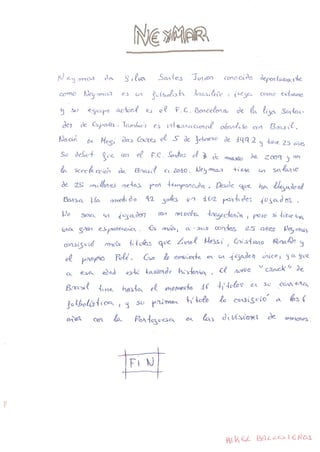 NEYMAR
Neymar da Silva Santos Junior conocido deportivamente
como Neymar es un futbolista brasileño, juega como extremo
y su equipo actual es el F.C. Barcelona de la liga Santan-
der de España. Tambien es internacional absoluto con Brasil.
Nació en Mogi das Cruces el 5 de febrero de 1992 y tiene 25 años
Su debut fue con el F.C. Santos el 7 de marzo de 2009 y en
la selección de Brasil el 2010. Neymar tiene un salario
de 25 millones netos por temporada. Desde que ha llegado al
Barsa ha metido 92 goles en 102 partidos jugados.
No sera un jugador con mucha trayectoria, pero si tiene
una gran experiencia. Es más, a sus cortos 25 años Neymar
consiguió más titulos que Lionel Messi, Cristiano Ronaldo y
el propio Pelé. Eso lo convierte en un jugador único, ya que
a esa edad está haciendo historia. El nuevo "crack" de
Brasil tiene hasta el momento 16 titulos en su carrera
futbolística, y su primer titulo lo consigció a los 6
años con la Portuguesa en las divisiones de menores.
FIN